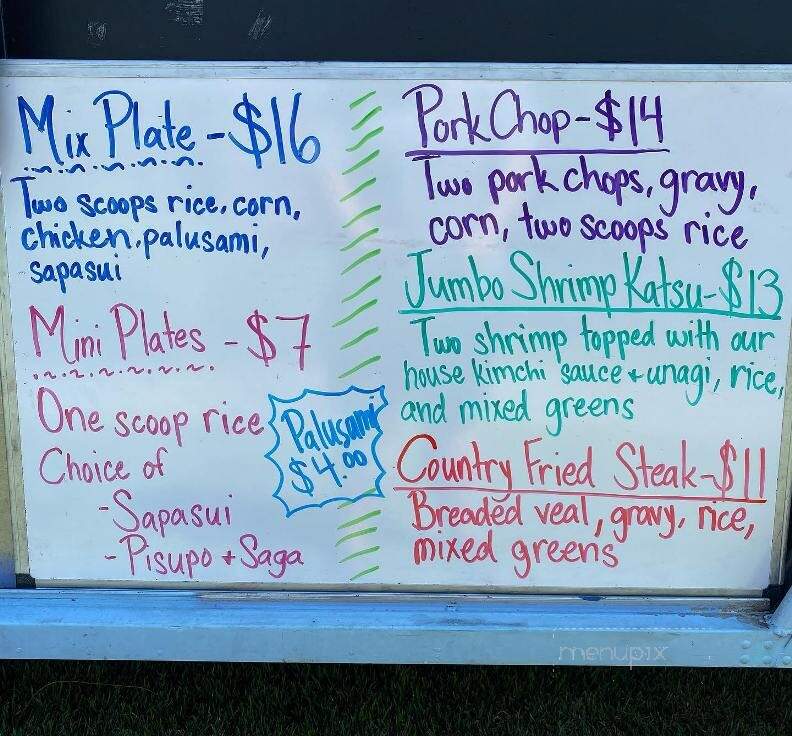 Mix Plate - $16
Two scoops rice, corn,
chicken, palusami,
sapasui
Mini Plates - $7
One scoop rice
Choice of
- Sapasui
- Pisupo + Saga
Palusami
$4.00
Pork Chop - $14
Two pork chops, gravy,
corn, two scoops rice
Jumbo Shrimp Katsu - $13
Two shrimp topped with our
house kimchi sauce + unagi, rice,
and mixed greens
Country Fried Steak - $11
Breaded veal, gravy, rice,
mixed greens
menupix